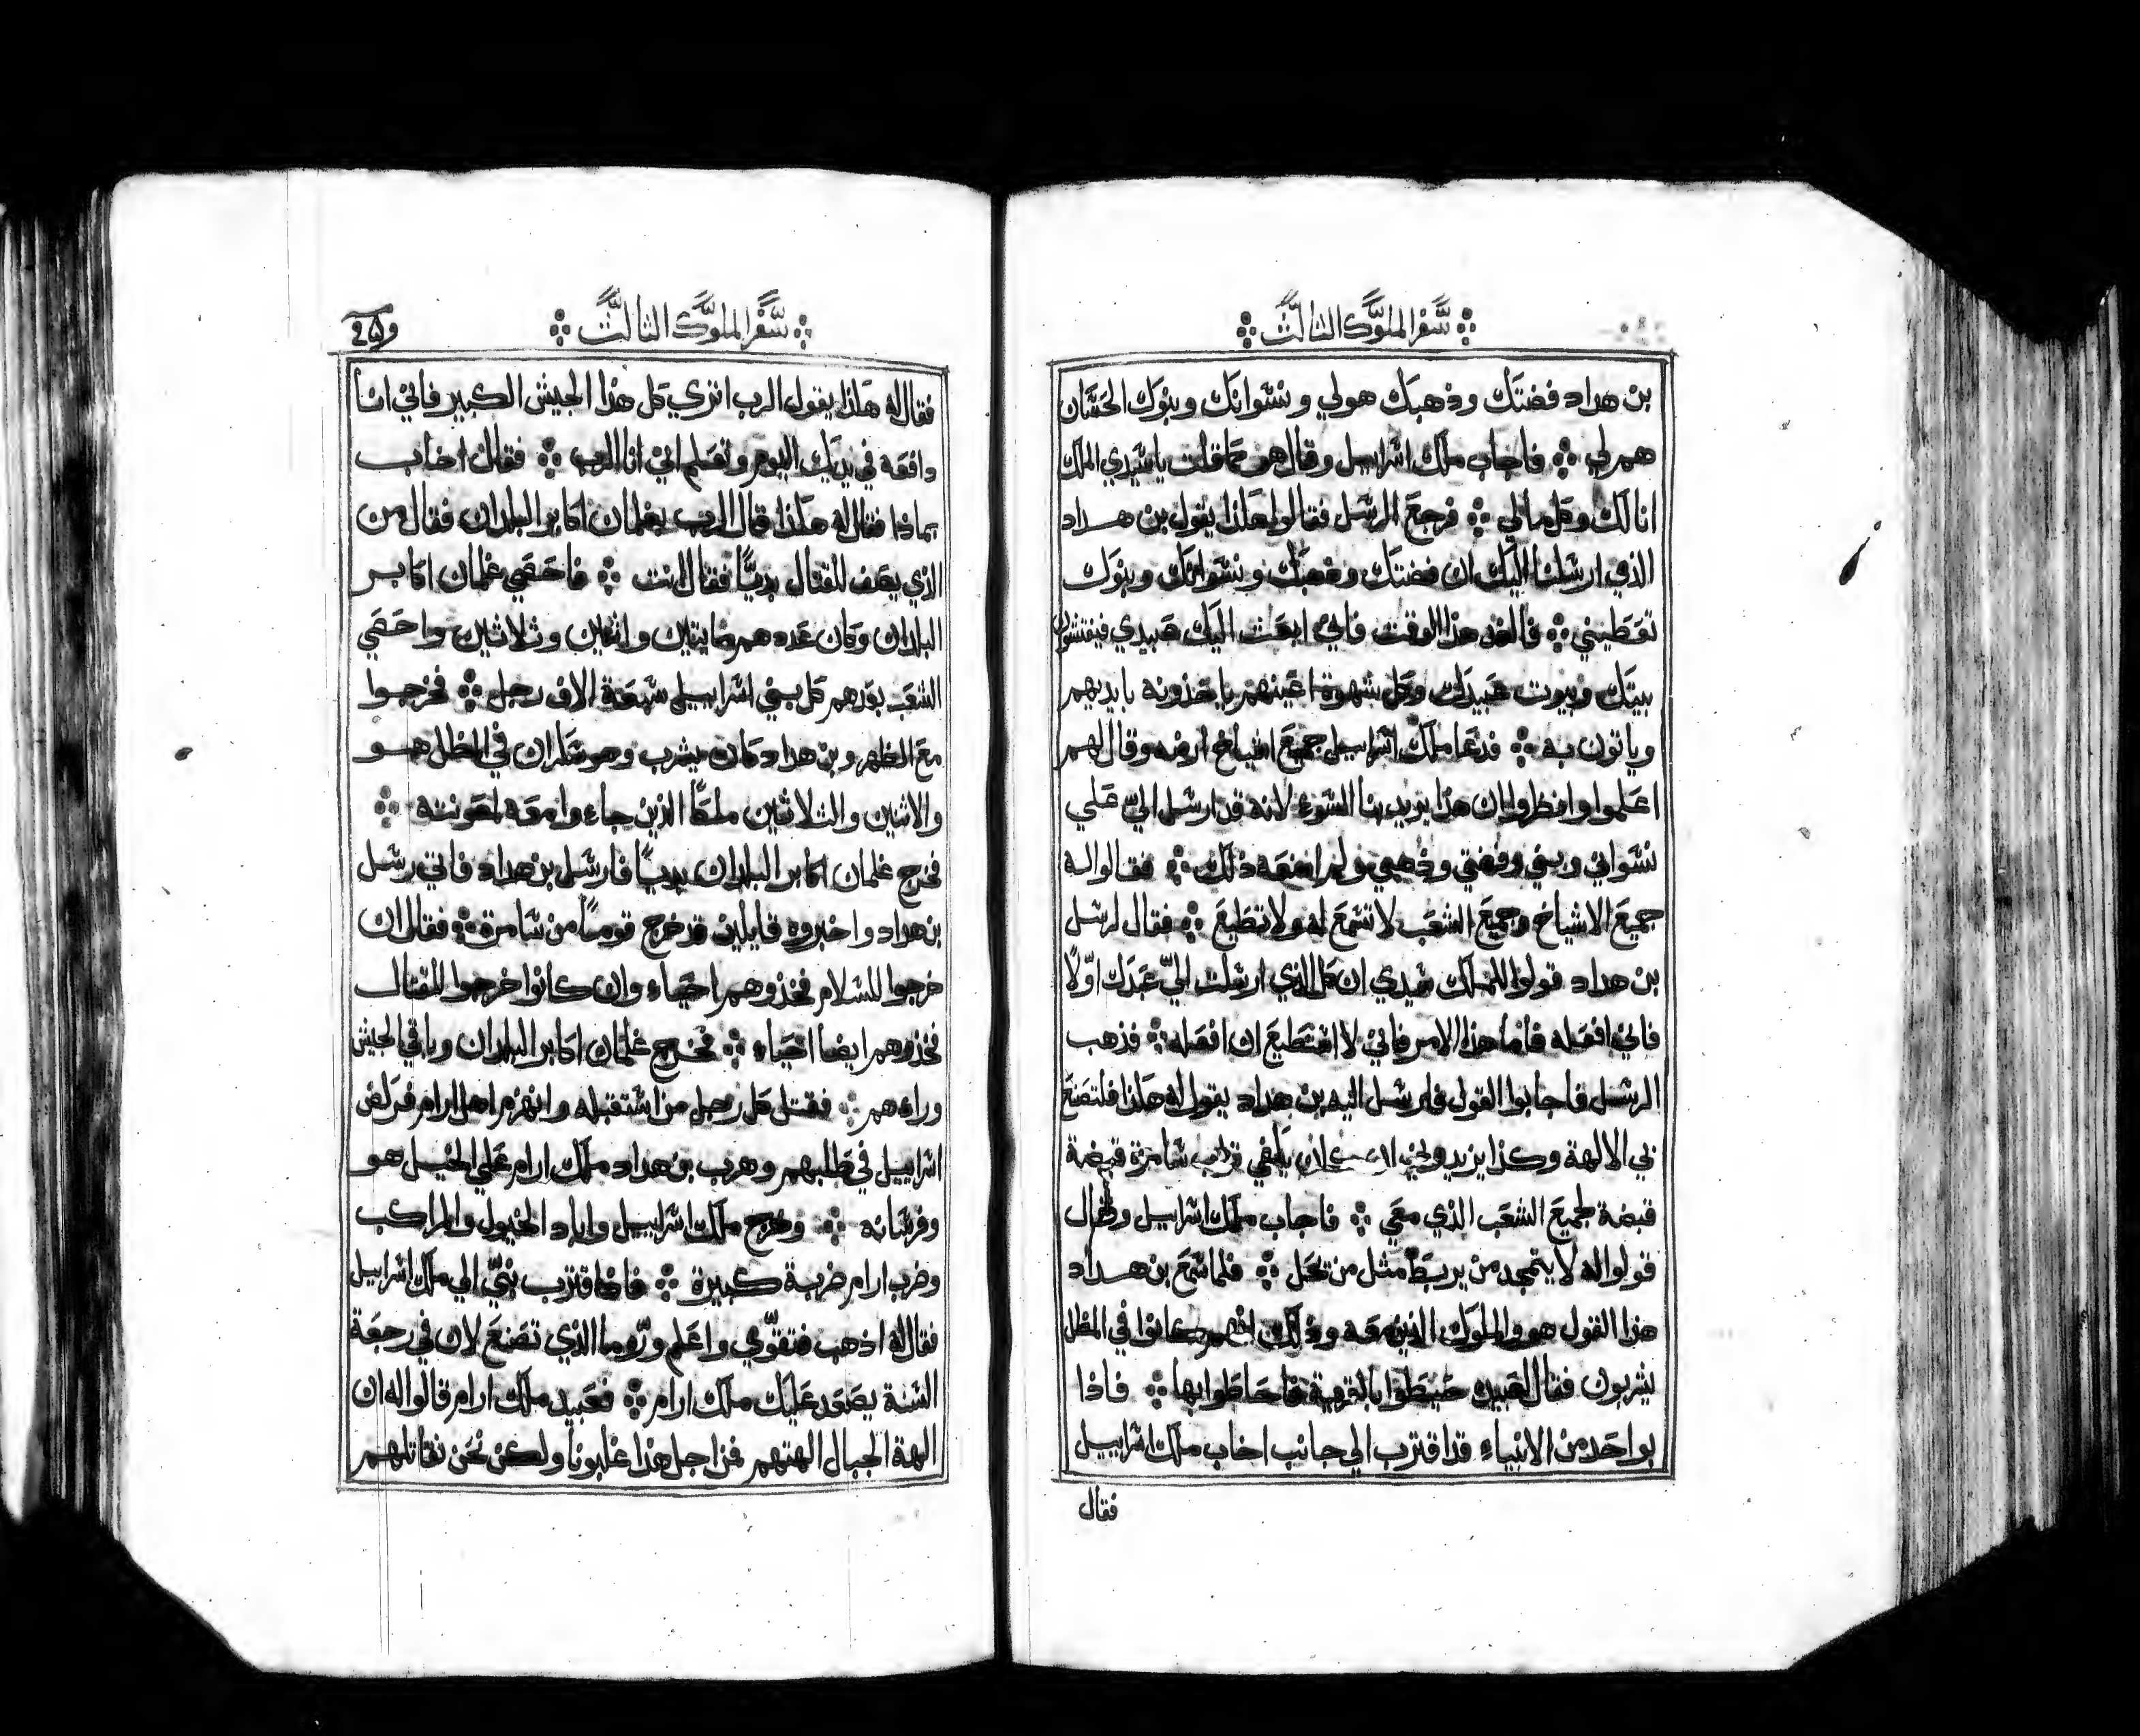 سفر الملوك الثالث
بن هداد فضتك وذهبك هولي ونسوانك وبنوك الحسان
هم لي فاجاب ملك اسراييل وقال هو كما قلت ياسيدي الملك
انا لك وكل مالي فرجع الرسل فقالوا هكذا يقول بن هداد
الذي ارسلنا اليك ان فضتك وذهبك ونسوانك وبنوك
تعطيني فالغد هذا الوقت فاني ابعت اليك عبيدي فيفتشون
بيتك وبيوت عبيدك وكل شهوة اعينهم ياخذونه بايديهم
وياتون به فدعا ملك اسراييل جميع اشياخ ارضه وقال لهم
اعلموا وانظروا ان هذا يريد بنا السوء لانه قد ارسل الي علي
نسواني وبني وفضتي وذهبي ولم امنعه ذلك فقالوا له
جميع الاشياخ وجميع الشعب لا تسمع له ولا تطيع فقال لرسل
بن هداد قولوا للملك سيدي ان كل الذي ارسلت الي عبدك اولًا
فاني افعله فاما هذا الامر فاني لا استطيع ان افعله فذهب
الرسل فاجابوا القول فارسل اليه بن هداد يقول له هكذا فلتصنع
بي الالهة وكذا يزيدوني ان كان يكفي تراب شامرة قبضة
قبضة لجميع الشعب الذي معي فاجاب ملك اسراييل وقال
قولوا له لا يتمجد من يربط مثل من يحل فلما سمع بن هداد
هذا القول هو والملوك الذين معه وذلك انهم كانوا في المظل
يشربون فقال لعبيده حيطوا بالقرية فاحاطوا بها فاذا
بواحد من الانبياء قد اقترب الي جانب اخاب ملك اسراييل
فقال
سفر الملوك الثالث
فقال له هكذا يقول الرب اتري كل هذا الجيش الكبير فاني انا
دافعه في يديك اليوم وتعلم اني انا الرب فقال اخاب
بماذا فقال له هكذا قال الرب بغلمان اكابر البلدان فقال من
الذي يصف للقتال بديًا فقال انت فاحصي غلمان اكابر
البلدان وكان عددهم مايتين واثنين وثلاثين واحصي
الشعب بعدهم كل بني اسراييل سبعة الاف رجل فخرجوا
مع الظهر وبن هداد كان يشرب وهو سكران في المظل هو
والاثنين والثلاثين ملكًا الذين جاءوا معه لمعونته
فخرج غلمان اكابر البلدان بديًا فارسل بن هداد فاتي رسل
بن هداد واخبروه قايلين قد خرج قومًا من شامرة فقال ان
خرجوا للسلام فخذوهم احياء وان كانوا خرجوا للقتال
فخذوهم ايضا احياء فخرج غلمان اكابر البلدان وباقي الجيش
وراءهم فقتل كل رجل من استقبله وانهزم اهل ارام فركض
اسراييل في طلبهم وهرب بن هداد ملك ارام علي الخيل هو
وفرسانه وخرج ملك اسراييل واباد الخيول والمراكب
وضرب ارام ضربة كبيرة فاقترب نبي الي ملك اسراييل
فقال له اذهب فتقوّي واعلم وروما الذي تصنع لان في رجعة
السنة يصعد عليك ملك ارام فعبيد ملك ارام قالوا له ان
الهة الجبال الهتهم فمن اجل هذا غلبونا ولكن نحن نقاتلهم